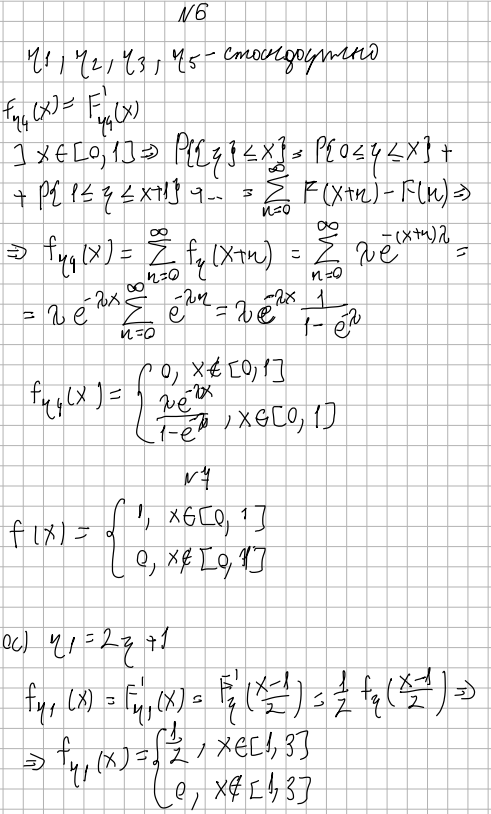 №6
η1, η2, η3, η5 - стандартно
f_{η4}(x) = F'_{η4}(x)
] x∈[0,1] ⇒ P{{η} ≤ x} = P{0 ≤ η ≤ x} +
+ P{1 ≤ η ≤ x+1} + ... = ∑_{n=0}^{∞} F(x+n) - F(n) ⇒
⇒ f_{η4}(x) = ∑_{n=0}^{∞} f_η(x+n) = ∑_{n=0}^{∞} λe^{-(x+n)λ} =
= λe^{-λx} ∑_{n=0}^{∞} e^{-λn} = λe^{-λx} 1/(1-e^{-λ})
f_{η4}(x) = { 0, x∉[0,1]
λe^{-λx}/(1-e^{-λ}), x∈[0,1]
№7
f(x) = { 1, x∈[0,1]
0, x∉[0,1]
a) η1 = 2η+1
f_{η1}(x) = F'_{η1}(x) = F'_η((x-1)/2) = 1/2 f_η((x-1)/2) ⇒
⇒ f_{η1}(x) = { 1/2, x∈[1,3]
0, x∉[1,3]